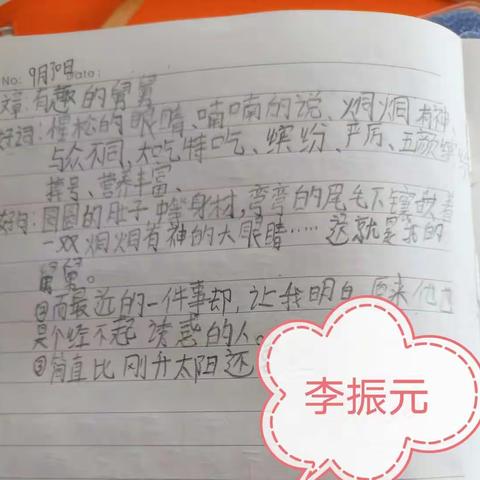 No: 9月30日 Date:
文章:有趣的舅舅
好词:惺松的眼睛、喃喃的说、炯炯有神、
与众不同,大吃特吃、缤纷、严厉、五颜缤纷
绰号、营养丰富、
好句:圆圆的肚子,身材,弯弯的眉毛下镶嵌着
一双炯炯有神的大眼睛……这就是我的
舅舅。
②而最近的一件事却,让我明白原来他也
是个经不起诱惑的人。
③简直比刚升太阳还
李振元